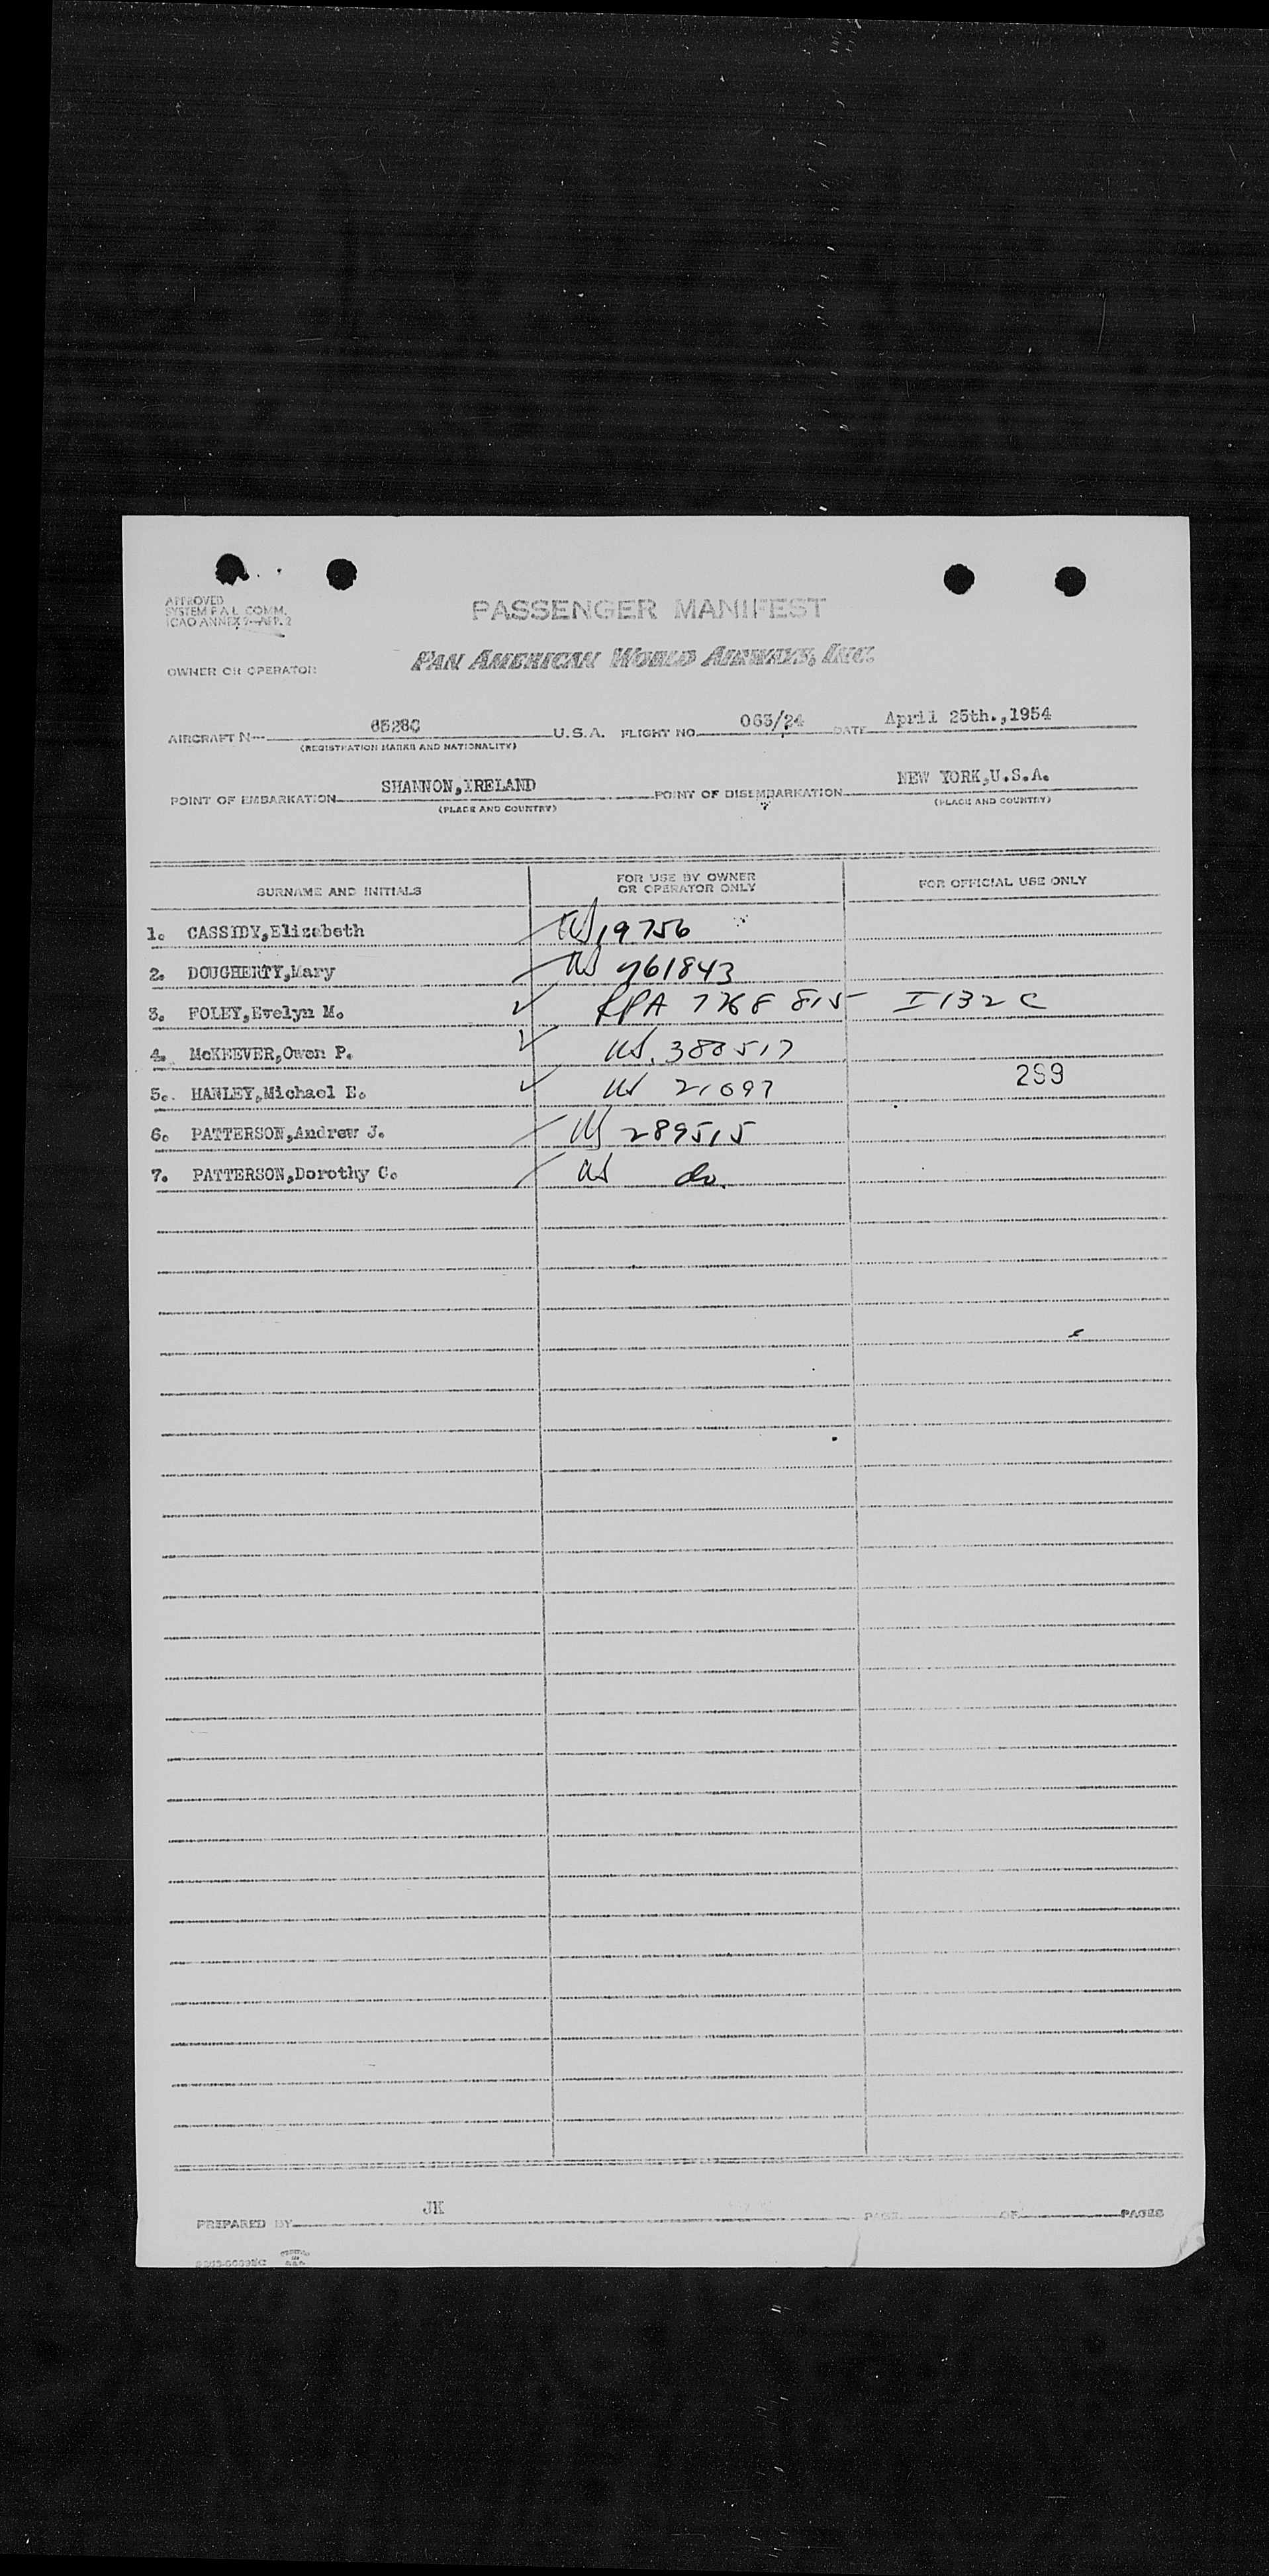 APPROVED
SYSTEM P.A.L. COMM.
ICAO ANNEX 9—APP. 2
PASSENGER MANIFEST
OWNER OR OPERATOR
PAN AMERICAN WORLD AIRWAYS, INC.
AIRCRAFT N— 65280 U.S.A. FLIGHT NO. 063/24 DATE April 25th.,1954
(REGISTRATION MARKS AND NATIONALITY)
POINT OF EMBARKATION SHANNON,IRELAND POINT OF DISEMBARKATION NEW YORK,U.S.A.
(PLACE AND COUNTRY) (PLACE AND COUNTRY)
SURNAME AND INITIALS FOR USE BY OWNER OR OPERATOR ONLY FOR OFFICIAL USE ONLY
1. CASSIDY,Elizabeth US 19756
2. DOUGHERTY,Mary US y61843
3. FOLEY,Evelyn M. RPA 7768 815 I 132 C
4. McKEEVER,Owen P. US. 380517
5. HANLEY,Michael E. US 21097 299
6. PATTERSON,Andrew J. US 289515
7. PATTERSON,Dorothy C. US do.
PREPARED BY JK PAGE OF PAGES